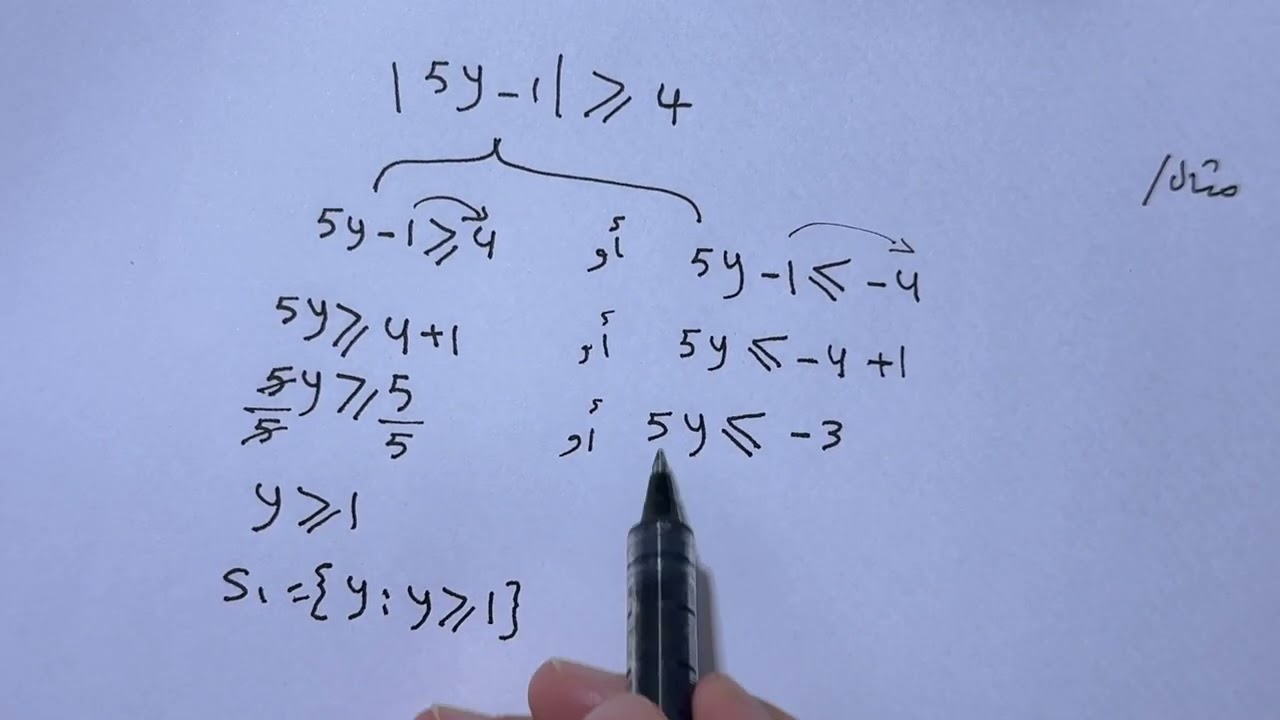 مثال/
|5y-1| ≥ 4
5y-1 ≥ 4 أو 5y-1 ≤ -4
5y ≥ 4+1 أو 5y ≤ -4+1
5y/5 ≥ 5/5 أو 5y ≤ -3
y ≥ 1
S₁ = {y : y ≥ 1}